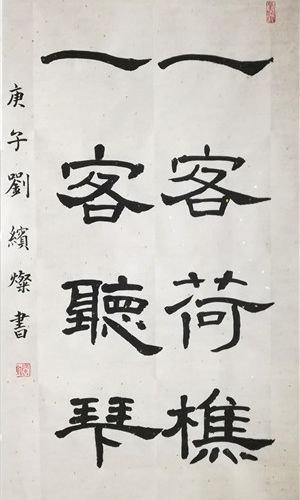 一客荷樵
一客聽琴
庚子劉繽燦書